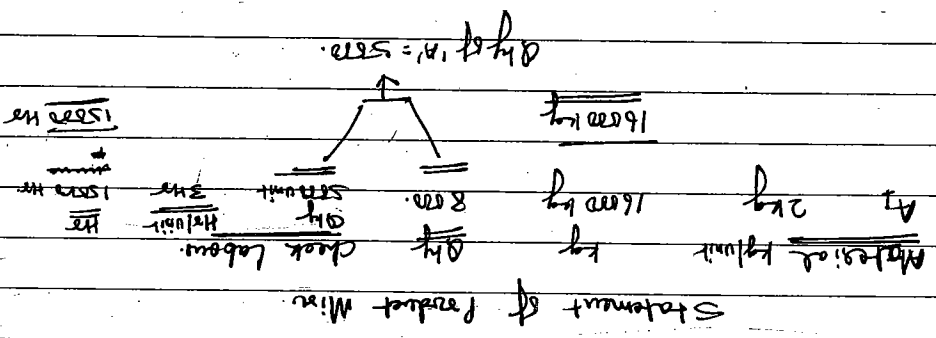 Statement of Product Mix.
Material kg/unit kg Qty Check Labour.
Qty Hr/unit Hr
A1 2kg 16000 kg 8000. 5000 unit 3Hr 15000 Hr
16000 kg 15000 Hr
Qty of 'A' = 5000.